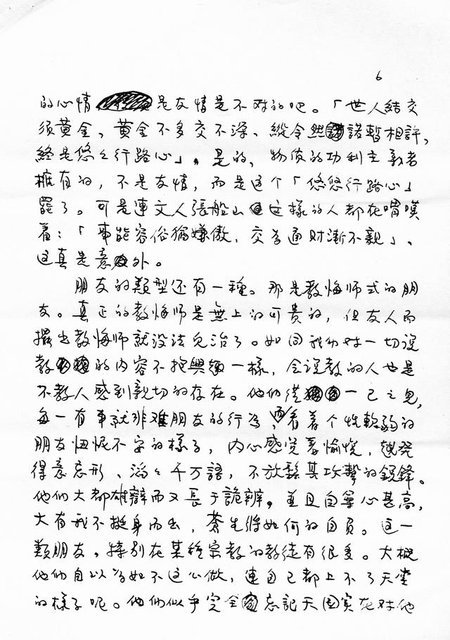 6
的心情是友情是不对的吧。「世人結交
须黄金、黄金不多交不深、縱令然諾暫相許、
終是悠々行路心」。是的、物质的功利主義者
擁有的，不是友情，而是这个「悠悠行路心」
罢了。可是連文人張船山这樣的人都在嘆
着：「事能容俗猶嫌傲，交為通財漸不親」、
这真是意外。
朋友的類型还有一種。那是教悔师式的朋
友。真正的教悔师是無上的可貴的，但友人而
擺出教悔师就没法兒治了。如同我们对一切说
教的内容不按興一樣，会说教的人也是
不教人感到親切的存在。他们從一己之見，
每一有事就非難朋友的行为，看着个性軟弱的
朋友忸怩不安的樣子，内心感覚着愉悦，越発
得意忘形、滔々千万語，不放鬆其攻撃的鋭鋒。
他们大都雄辯而又長于詭辯。並且自尊心甚高，
大有我不挺身而出，蒼生将如何的自負。这一
類朋友，特别在某種宗教的教徒有很多。大概
他们自以为如不这么做，連自己都上不了天堂
的樣子呢。他们似乎完全忘記天国実在对他